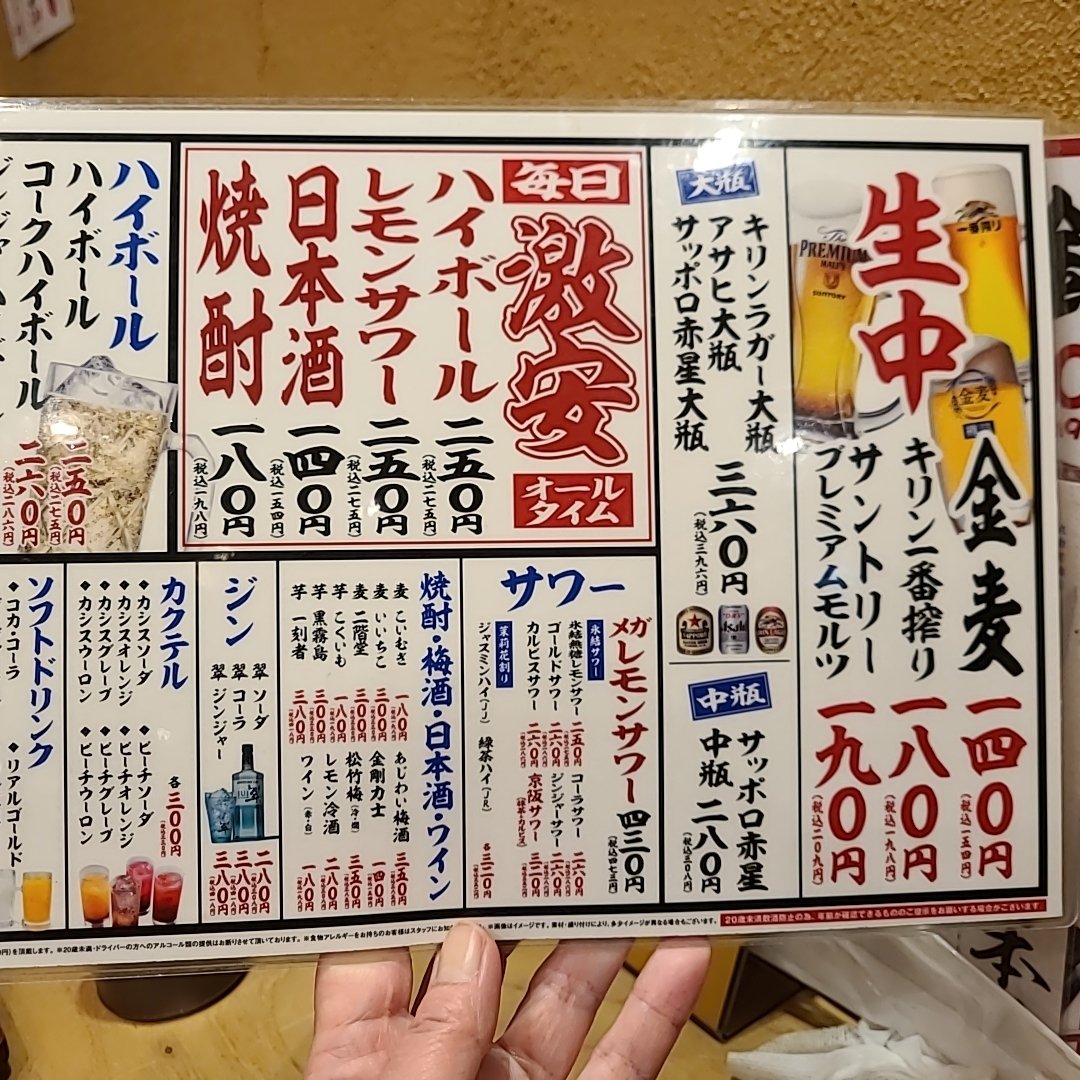 生中
金麦 一四〇円
(税込一五四円)
キリン一番搾り 一八〇円
(税込一九八円)
サントリー
プレミアムモルツ 一九〇円
(税込二〇九円)
THE PREMIUM
MALT'S
SUNTORY
一番搾り
金麦
大瓶
キリンラガー大瓶
アサヒ大瓶
サッポロ赤星大瓶
三六〇円
(税込三九六円)
中瓶
サッポロ赤星
中瓶 二八〇円
(税込三〇八円)
毎日
激安
オール
タイム
ハイボール 二五〇円
(税込二七五円)
レモンサワー 二五〇円
(税込二七五円)
日本酒 一四〇円
(税込一五四円)
焼酎 一八〇円
(税込一九八円)
ハイボール
ハイボール 二五〇円
(税込二七五円)
コークハイボール 二六〇円
(税込二八六円)
サワー
メガレモンサワー 四三〇円
(税込四七三円)
氷結サワー
氷結無糖レモンサワー 二五〇円
コーラサワー 二六〇円
ゴールドサワー 二六〇円
ジンジャーサワー 二六〇円
カルピスサワー 二六〇円
京阪サワー 三二〇円
(緑茶+カルピス)
茉莉花割り
ジャスミンハイ(JJ)
緑茶ハイ(JR)
各三二〇円
焼酎・梅酒・日本酒・ワイン
麦 こいむぎ 一八〇円
麦 いいちこ 三〇〇円
麦 二階堂 三〇〇円
芋 こくいも 一八〇円
芋 黒霧島 三〇〇円
芋 一刻者 三八〇円
あじわい梅酒 三五〇円
金剛力士 一四〇円
松竹梅(冷・燗) 三五〇円
レモン冷酒 二八〇円
ワイン(赤・白) 一八〇円
ジン
翠 ソーダ 二八〇円
翠 コーラ 三八〇円
翠 ジンジャー 三八〇円
カクテル
◆カシスソーダ
◆カシスオレンジ
◆カシスグレープ
◆カシスウーロン
◆ピーチソーダ
◆ピーチオレンジ
◆ピーチグレープ
◆ピーチウーロン
各三〇〇円
(税込三三〇円)
ソフトドリンク
◆コカ・コーラ
◆リアルゴールド
円)を頂戴します。※20歳未満・ドライバーの方へのアルコール類の提供はお断りさせて頂いております。※食物アレルギーをお持ちのお客様はスタッフにお知
※画像はイメージです。素材・盛り付けにより、多少イメージが異なる場合もございます。
20歳未満飲酒防止の為、年齢が確認できるもののご提示をお願いする場合がございます。